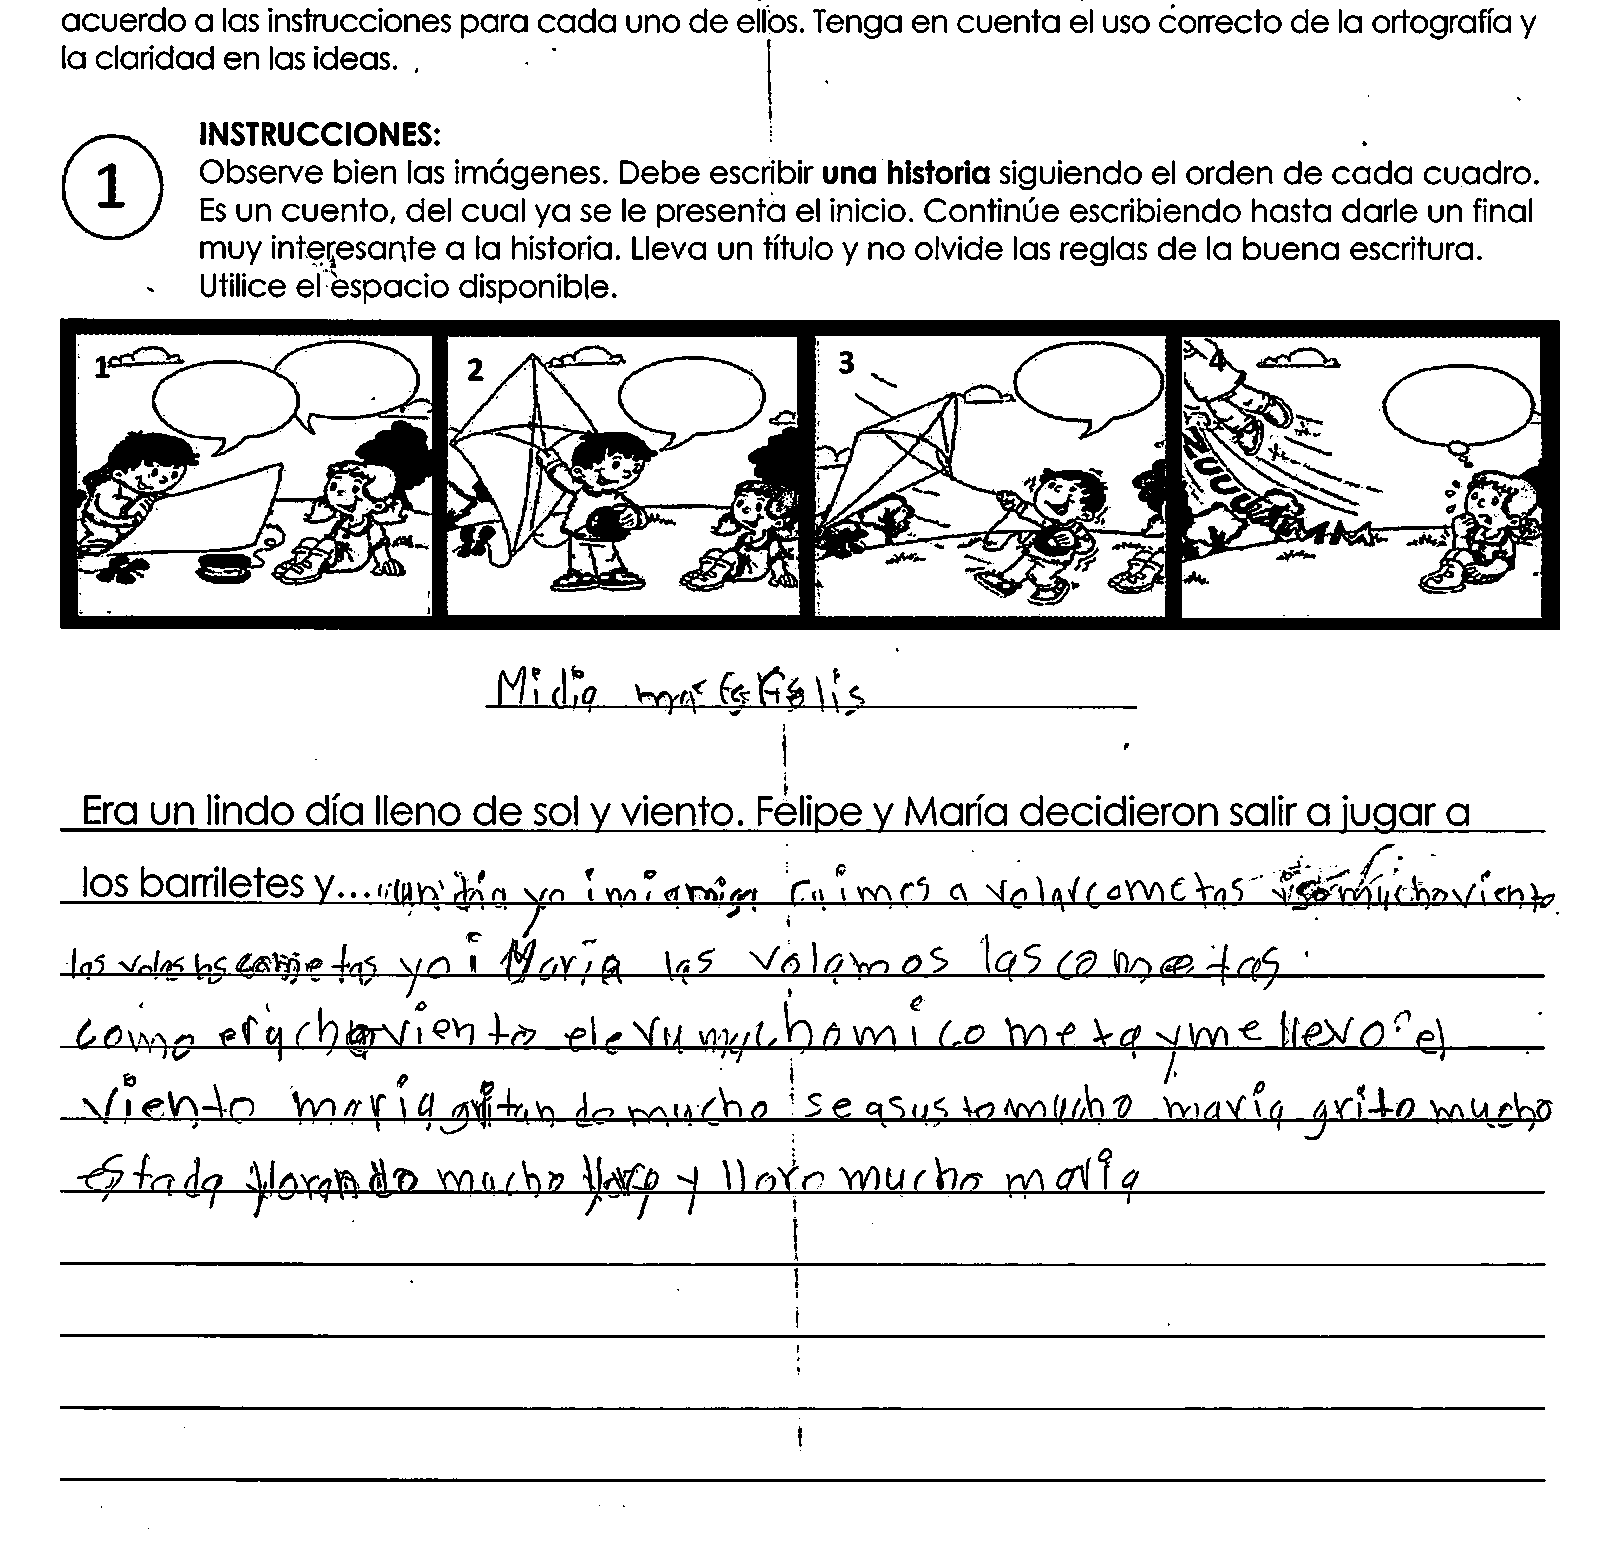 acuerdo a las instrucciones para cada uno de ellos. Tenga en cuenta el uso correcto de la ortografía y
la claridad en las ideas.
INSTRUCCIONES:
1
Observe bien las imágenes. Debe escribir una historia siguiendo el orden de cada cuadro.
Es un cuento, del cual ya se le presenta el inicio. Continúe escribiendo hasta darle un final
muy interesante a la historia. Lleva un título y no olvide las reglas de la buena escritura.
Utilice el espacio disponible.
1 2 3 4
Midia
Era un lindo día lleno de sol y viento. Felipe y María decidieron salir a jugar a
los barriletes y... un día yo i mi amiga fuimos a volar cometas mucho viento
las cometas yo i María las volamos las cometas
como viento eleva mucho mi cometa y me llevo el
viento maria gritando mucho se asusto mucho maria grito mucho
estada llorando mucho lloro y lloro mucho maria